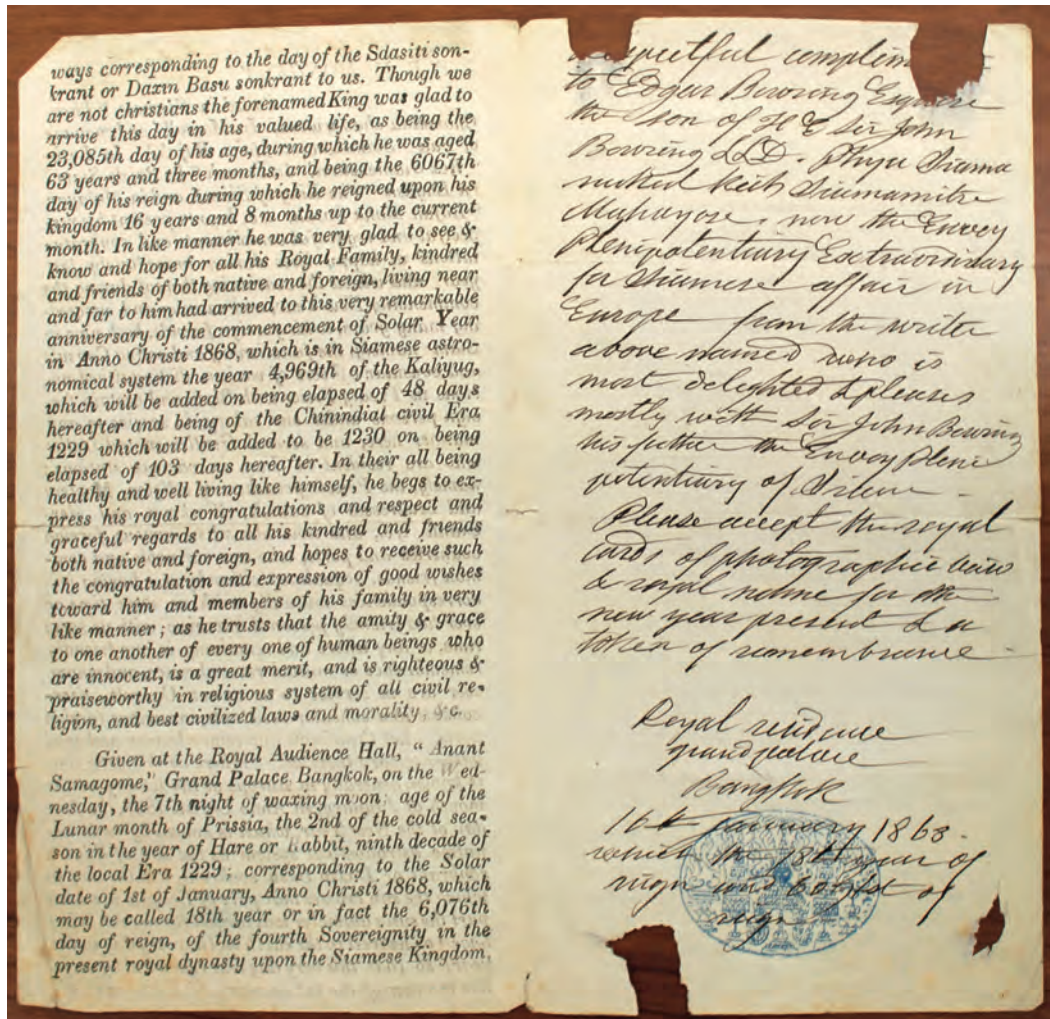 ways corresponding to the day of the Sdasiti son-
krant or Daxin Basu sonkrant to us. Though we
are not christians the forenamed King was glad to
arrive this day in his valued life, as being the
23,085th day of his age, during which he was aged
63 years and three months, and being the 6067th
day of his reign during which he reigned upon his
kingdom 16 years and 8 months up to the current
month. In like manner he was very glad to see &
know and hope for all his Royal Family, kindred
and friends of both native and foreign, living near
and far to him had arrived to this very remarkable
anniversary of the commencement of Solar Year
in Anno Christi 1868, which is in Siamese astro-
nomical system the year 4,969th of the Kaliyug,
which will be added on being elapsed of 48 days
hereafter and being of the Chinindial civil Era
1229 which will be added to be 1230 on being
elapsed of 103 days hereafter. In their all being
healthy and well living like himself, he begs to ex-
press his royal congratulations and respect and
graceful regards to all his kindred and friends
both native and foreign, and hopes to receive such
the congratulation and expression of good wishes
toward him and members of his family in very
like manner; as he trusts that the amity & grace
to one another of every one of human beings who
are innocent, is a great merit, and is righteous &
praiseworthy in religious system of all civil re-
ligion, and best civilized laws and morality, &c.
Given at the Royal Audience Hall, "Anant
Samagome," Grand Palace Bangkok, on the Wed-
nesday, the 7th night of waxing moon: age of the
Lunar month of Prissia, the 2nd of the cold sea-
son in the year of Hare or Rabbit, ninth decade of
the local Era 1229; corresponding to the Solar
date of 1st of January, Anno Christi 1868, which
may be called 18th year or in fact the 6,076th
day of reign, of the fourth Sovereignty in the
present royal dynasty upon the Siamese Kingdom.
to Edgar Bowring Esquire
the son of H E Sir John
Bowring LLD. Phya Siama
Siamamitra
Mahayose, now the Envoy
Plenipotentiary Extraordinary
for Siamese affair in
Europe from the writer
above named who is
most delighted & pleases
mostly with Sir John Bowring
his father the Envoy Pleni
potentiary of Siam -
Please accept the royal
cards of photographic
& royal name for the
new year present & a
token of remembrance -
Royal residence
grand palace
Bangkok
16th January 1868.
which the 18th year of
reign and of
reign